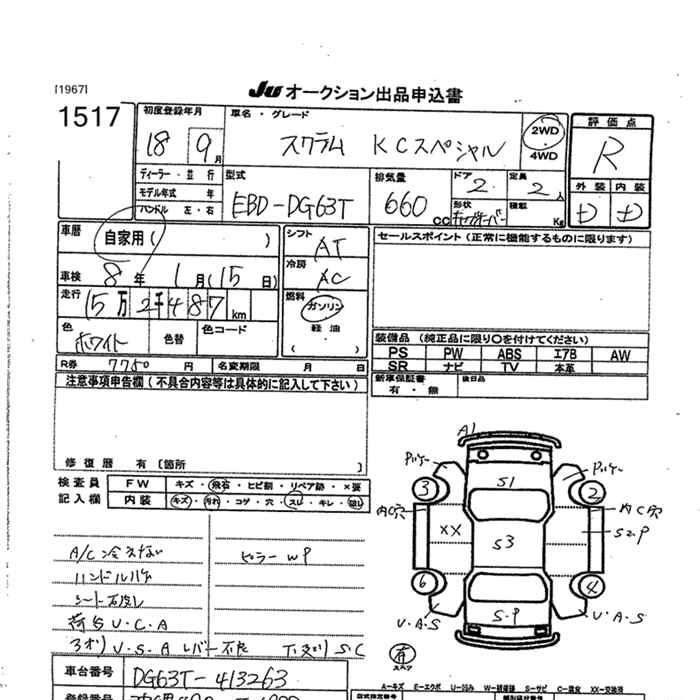 [1967]
JU オークション出品申込書
1517
初度登録年月
車名・グレード
18 9月
スクラム KCスペシャル
2WD
4WD
評価点
R
外装 内装
ディーラー・並行
モデル年式 年
ハンドル 左・右
型式
EBD-DG63T
排気量
660
CC
ドア
2
定員
2人
形状
積載
Kg
車歴
自家用( )
シフト
AT
セールスポイント(正常に機能するものに限ります)
車検
8年 1月(15日)
冷房
AC
走行
15万2千487km
燃料
ガソリン
軽油
色
ホワイト
色替
色コード
装備品(純正品に限り○を付けてください)
PS PW ABS エアB AW
SR ナビ TV 本革
R券 7750円
名変期限 月 日
新車保証書
有・無
後日品
注意事項申告欄(不具合内容等は具体的に記入して下さい)
修復歴 有 [箇所 ]
検査員
記入欄
FW キズ・飛石・ヒビ割・リペア跡・×要
内装 キズ・汚れ・コゲ・穴・スレ・キレ・
A1
S1
3
2
内C穴
XX
S3
6
4
S・P
U・A・S
U・A・S
A/C冷えない
ピラーWP
ハンドルハゲ
荷台U.C.A
3オリU.S.A レバー不良
S.C
有
スペア
A-キズ E-エクボ U-凹み W-補修 S-サビ C-腐食 XX-交換済
車台番号
DG63T-413263
登録番号